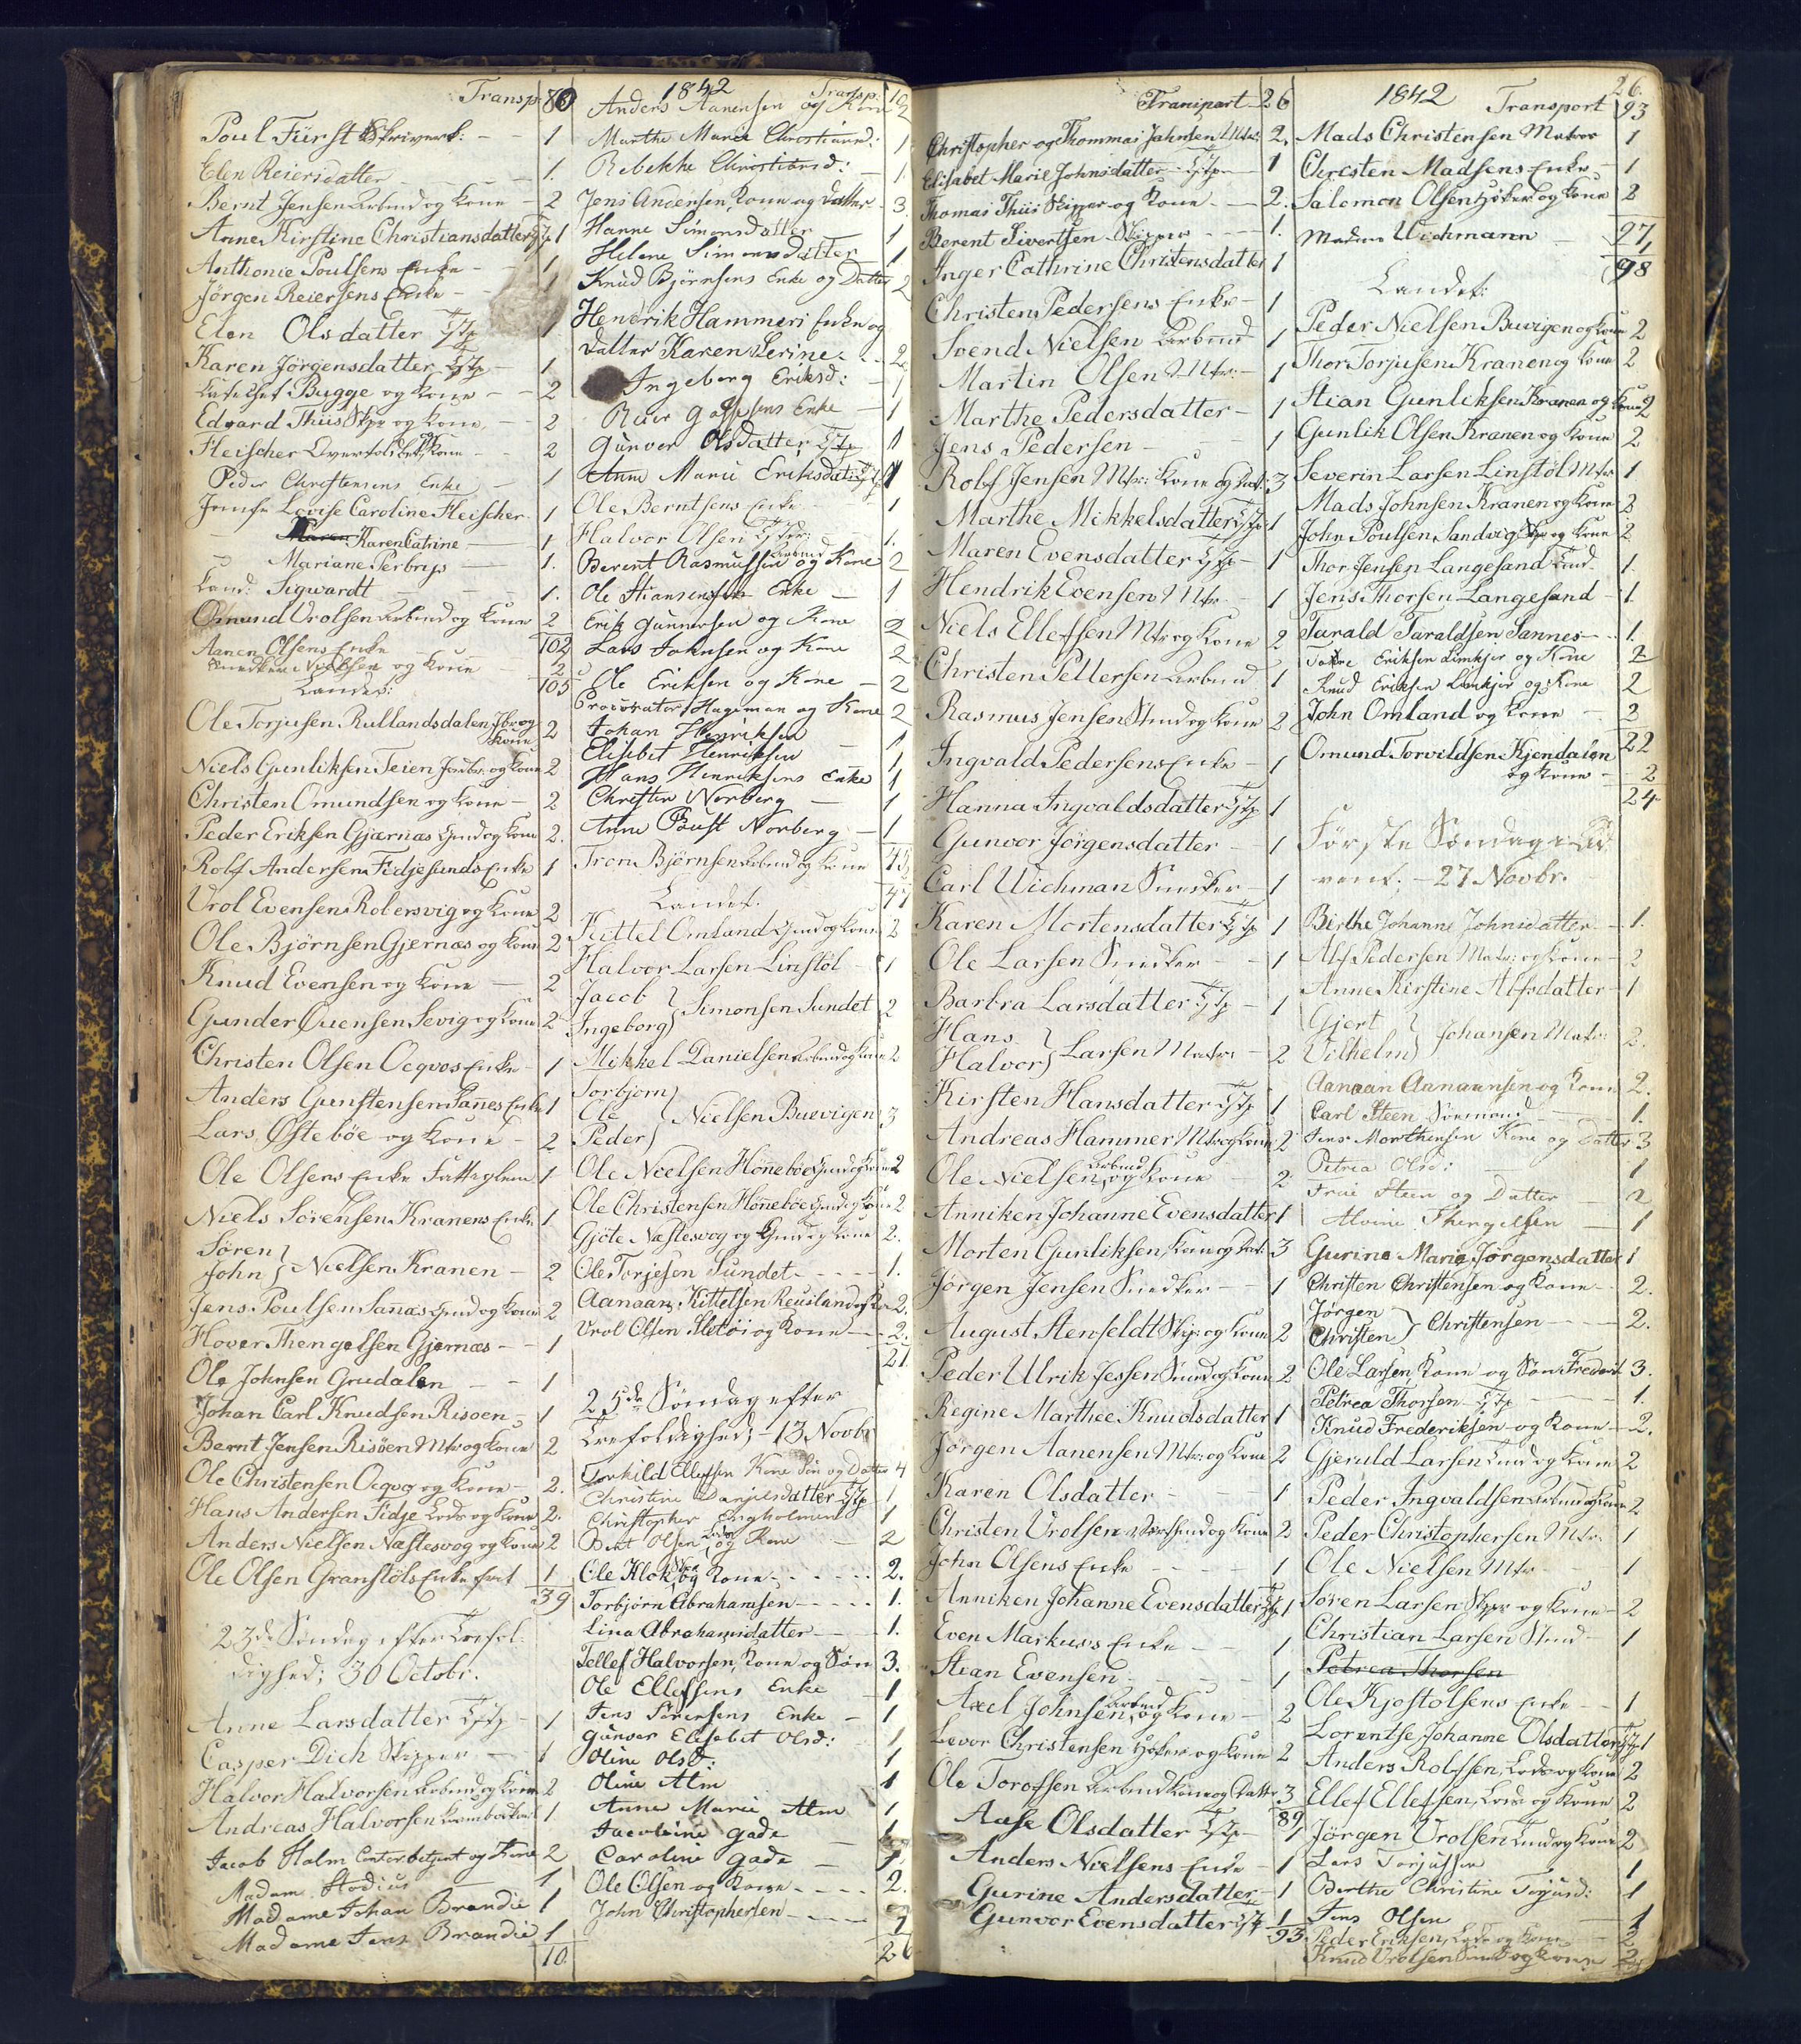 1842
Transp. 80
Poul Fürst Skriverk: - - 1
Elen Reiersdatter - - 1.
Bernt Jensen Arbmd og Kone - 2
Anne Kirstine Christiansdatter Tjtp 1
Anthonie Poulsens Enke - - 1
Jørgen Reiersens Enke - -
Elen Olsdatter Tjtp 1
Karen Jørgensdatter Tjtp - 1
Bugge og Kone - - 2
Edvard Thiis Skpr og Kone - - 2
Fleischer og Kone - - 2
Peder Christensens Enke - 1
Jomfr Lovise Caroline Fleischer 1
- Karen Catrine - 1
Mariane Perbrys - 1.
Cand: Sigwardt - - - 1.
Omund Vrolsen Arbmd og Kone 2
102
Aanen Olsens Enke 1
Snedker Nielsen og Kone 2
105
Landet:
Ole Torjusen Rullandsdalen Jbr og
Kone 2
Niels Gunliksen Teien Jordbr: og Kone 2
Christen Omundsen og Kone - 2
Peder Eriksen Gjærnæs Gmd og Kone 2.
Rolf Andersen Fidjesunds Enke 1
Vrol Evensen Robersvig og Kone 2
Ole Bjørnsen Gjernæs og Kone 2
Knud Evensen og Kone - 2
Gunder Ouensen Sevig og Kone 2
Christen Olsen Ocqvos Enke - 1
Anders Gunstensen Sannes Enke 1
Lars Østebøe og Kone - 2
Ole Olsens Enke Fattiglem 1
Niels Sørensen Kranens Enke 1
Søren }
John } Nielsen Kranen - 2
Jens Poulsen Sannæs Gmd og Kone 2
Hover Thengelsen Gjernæs - - 1
Ole Johnsen Grudalen - - 1
Johan Carl Knudsen Risøen - 1
Bernt Jensen Risøen Mtr og Kone 2
Ole Christensen Ocqvog og Kone - 2.
Hans Andersen Fidje Lods og Kone 2.
Anders Nielsen Næstesvog og Kone 2
Ole Olsen Granstøls Enke fat 1
39
23de Søndag efter Trefol-
dighed; 30 Octobr.
Anne Larsdatter Tjtp - 1
Casper Dich Skipper - 1
Halvor Halvorsen Arbmd og Kone 2
Andreas Halvorsen Krambodkarl 1
Jacob Holm Contorbetjent og Kone 2
Madam Stodius 1
Madame Johan Brandie 1
Madame Jens Brandie 1
10.
Transp: 102
Anders Aanensen og Kone 2
Marthe Marie Christiansd: 1
Rebekke Christiansd: - 1
Jens Andersen, Kone og Datter 3.
Hanne Simonsdatter 1
Helene Simonsdatter 1
Knud Bjørnsens Enke og Datter 2
Hendrik Hammers Enke og
Datter Karen Serine - - 2
Ingeborg Eriksd: - 1
Reier Gassesens Enke - 1
Gunvor Olsdatter, Tjtp 1
Anne Marie Eriksdatter Tjtp 1
Ole Berntsens Enke 1
Halvor Olsen Tjkar: 1.
Berent Rasmussen Arbmd og Kone 2
Ole Stiansens Enke - 1
Erik Gunnersen og Kone 2
Lars Johnsen og Kone 2
Ole Eriksen og Kone - 2
Procurator Hageman og Kone 2
Johan Henriksen - 1
Elisebet Henriksen 1
Hans Henriksens Enke 1
Christen Norberg - 1
Anne Bust Norberg - 1
Tron Bjørnsen Arbmd og Kone
47
Landet.
Kittel Omland Gmd og Kone 2
Halvor Larsen Linstøl - 1
Jacob }
Ingeborg } Simonsen Sundet 2
Mikkel Danielsen Arbmd og Kone 2
Torbjørn }
Ole } Nielsen Buevigen 3
Peder }
Ole Neelsen Hønnebøe Gmd og Kone 2
Ole Christensen Hønnebøe Gmd og Kone 2
Gjøte Næstesvog og Gmd og Kone 2.
Ole Torjesen Sundet - - - 1.
Aanaan Kittelsen Reusland og Kone 2.
Vrol Olsen Sletøi og Kone - - 2.
21.
25de Søndag efter
Trefoldighed; - 13 Novbr
Torkild Ellefsen Kone Søn og Datter 4
Christine Danjelsdatter Tjtp 1
Christopher Engholmen 1
Bent Olsen, Lods og Kone - 2
Ole Klok, Skpr og Kone - - - 2.
Torbjørn Abrahamsen - - - 1.
Lina Abrahamsdatter - - 1.
Tellef Halvorsen, Kone og Søn 3.
Ole Ellefsens Enke 1
Jens Sørensens Enke - 1
Gunvor Elisebet Olsd: - 1
Oline Olsd: 1
Oline Alm 1
Anne Marie Alm 1
Jacobine Gade 1
Caroline Gade - 1
Ole Olsen og Kone - - - 2.
John Christophersen - - - 1
26
1842
26.
Transport 26
Christopher og Thommas Jahnsen Mtr: 2.
Elisabet Marie Johnsdatter - Tjtp - 1
Thomas Thiis Skipper og Kone - - 2.
Berent Sivertsen Skipper - - - 1.
Inger Cathrine Christensdatter 1
Christen Pedersens Enke - 1
Svend Nielsen Arbmd 1
Martin Olsen Mtr: - 1
Marthe Pedersdatter - 1
Jens Pedersen - - 1
Rolf Jensen Mtr: Kone og Dat: 3
Marthe Mikkelsdatter Tjtp 1
Maren Evensdatter Tjtp - 1
Hendrik Evensen Mtr - 1
Niels Ellefsen Mtr og Kone 2
Christen Pettersen Arbmd 1
Rasmus Jensen Stmd og Kone 2
Ingvald Pedersens Enke - 1
Hanna Ingvaldsdatter Tjtp 1
Gunvor Jørgensdatter - 1
Carl Wichman Snedker - 1
Karen Mortensdatter Tjtp 1
Ole Larsen Snedker - - 1
Barbra Larsdatter Tjtp - 1
Hans }
Halvor } Larsen Matr: - 2
Kirsten Hansdatter Tjtp 1
Andreas Hammer Mtr og Kone 2
Ole Nielsen, Arbmd og Kone - 2
Anniken Johanne Evensdatter 1
Morten Gunliksen, Kone og Dat: 3
Jørgen Jensen Snedker - - 1
August Stenfeldt Skp: og Kone 2
Peder Ulrik Jessen Smed og Kone 2
Regine Marthee Knudsdatter 1
Jørgen Aanensen Mtr: og Kone 2
Karen Olsdatter - - - 1
Christen Vrolsen og Kone 2
John Olsens Enke - - - 1
Anniken Johanne Evensdatter Tjtp 1
Even Markus's Enke - - 1
Stian Evensen - - - 1
Axel Johnsen, Arbmd og Kone - 2
Levor Christensen Høker og Kone 2
Ole Torossen Arbmd Kone og Datter 3
89
Aase Olsdatter Tjtp - 1
Anders Nielsens Enke - 1
Gurine Andersdatter - 1
Gunvor Evensdatter Tjtp 1
93
Transport 93
Mads Christensen Matros 1
Christen Madsens Enke - 1
Salomon Olsen Høker og Kone 2
97
Madam Wichmann 1
98
Landet:
Peder Nielsen Buvigen og Kone 2
Thor Torjusen Kranen og Kone 2
Stian Gunleksen Kranen og Kone 2
Gunlik Olsen Kranen og Kone 2
Severin Larsen Linstøl Mtr 1
Mads Johnsen Kranen og Kone 2
John Poulsen Sandvig Skp og Kone 2
Thor Jensen Langesand Lmd. 1.
Jens Thorsen Langesand - 1.
Tarald Taraldsen Sannes - - 1.
Tobre Eriksen Limkjer og Kone 2
Knud Eriksen Limkjer og Kone 2
John Omland og Kone - 2
22
Omund Torvildsen Kjendalen
og Kone - - 2
24
Første Søndag i Ad-
vent; - 27 Novbr.
Birthe Johanne Johnsdatter - 1.
Alf Pedersen Matr: og Kone - 2
Anne Kirstine Alfsdatter - 1
Gjert }
Vilhelm } Johansen Matr: 2.
Aanaan Aanaansen og Kone 2.
Carl Steen Sømand - - 1.
Jens Morthensen Kone og Datter 3
Petrea Olsd: - 1
Frue Steen og Datter 2
Alvine Thengelsen - 1
Gurine Marie Jørgensdatter 1
Christen Christensen og Kone - 2.
Jørgen }
Christen } Christensen - - - 2.
Ole Larsen, Kone og Søn Frederik 3.
Petrea Thorsen - Tjtp - - 1.
Knud Frederiksen og Kone - 2.
Gjeruld Larsen Lmd og Kone 2
Peder Ingvaldsen Arbmd og Kone 2
Peder Christophersen Mtr. 1
Ole Nielsen Mtr - 1
Søren Larsen Skpr og Kone - 2
Christian Larsen Stmd - 1
Petrea Thorsen
Ole Kjostolsens Enke - - 1
Lorentse Johanne Olsdatter Tjtp 1
Anders Rolfsen, Lods og Kone 2
Ellef Ellefsen, Lods og Kone 2
Jørgen Vrolsen Lmd og Kone 2
Lars Torjussen 1
Berthe Christine Torjusd: 1
Jens Olsen 1
Peder Eriksen, Lods og Kone 2
Knud Vrolsen Smed og Kone 2